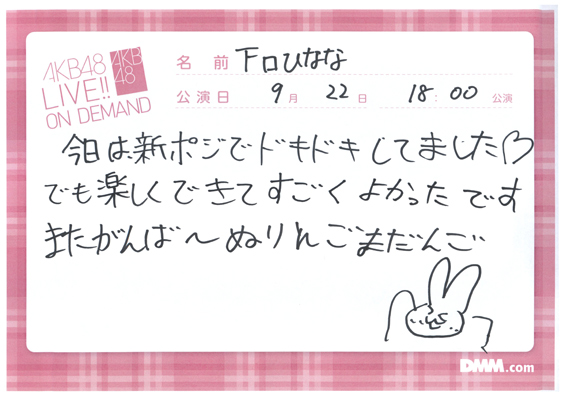 AKB48
LIVE!!
ON DEMAND
AKB
48
名前 下口ひなな
公演日 9月 22日 18:00 公演
今日は新ポジでドキドキしてました♡
でも楽しくできてすごくよかったです
またがんば〜ぬりんごまだんご
DMM.com